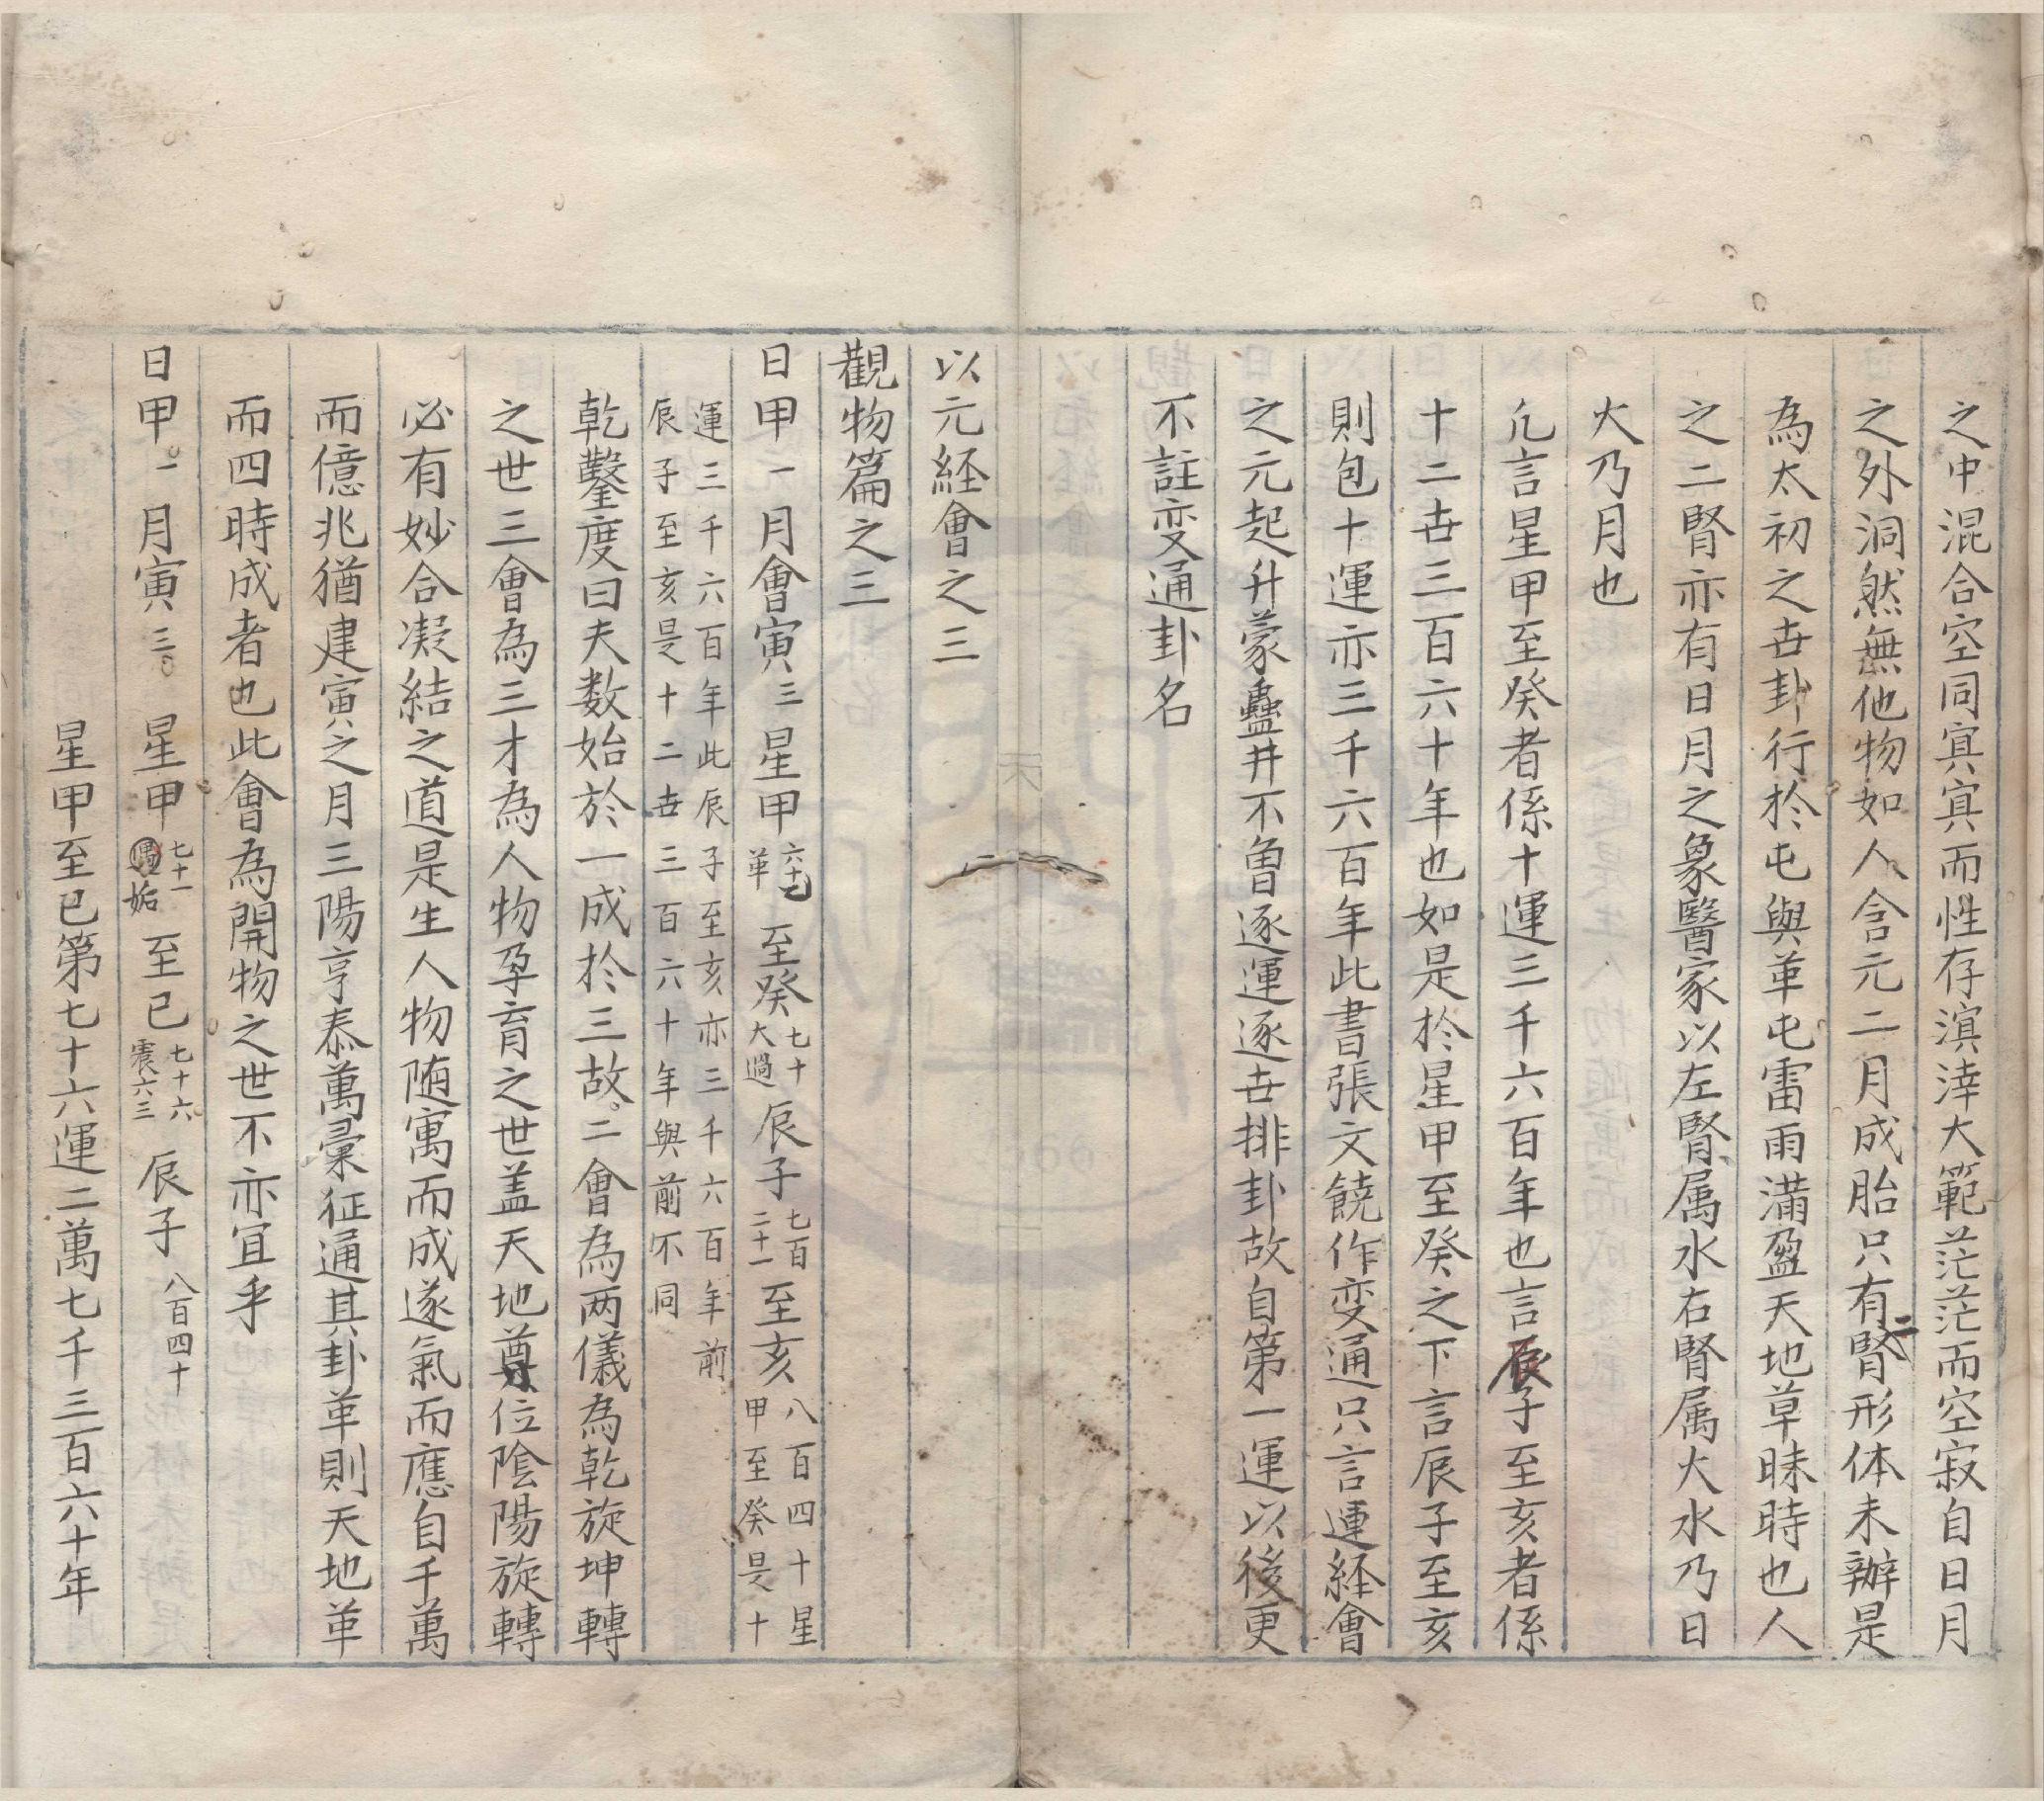 之中混合空同寘寘而性存溟涬大範茫茫而空寂自日月
之外洞然無他物如人含元二月成胎只有二腎形体未辦是
為太初之世卦行於屯與革屯雷雨滿盈天地草昧時也人
之二腎亦有日月之象醫家以左腎属水右腎属火水乃日
火乃月也
凢言星甲至癸者係十運三千六百年也言辰子至亥者係
十二世三百六十年也如是於星甲至癸之下言辰子至亥
則包十運亦三千六百年此書張文饒作变通只言運経會
之元起升蒙蠱井不曾逐運逐世排卦故自第一運以後更
不註变通卦名
以元経會之三
觀物篇之三
日甲一月會寅三星甲六十一革至癸七十大過辰子七百二十一至亥八百四十星甲至癸是十
運三千六百年此辰子至亥亦三千六百年前
辰子至亥是十二世三百六十年與前不同
乾鑿度曰夫数始於一成於三故二會為两儀為乾旋坤轉
之世三會為三才為人物孕育之世盖天地尊位陰陽旋轉
必有妙合凝結之道是生人物随寓而成遂氣而應自千萬
而億兆猶建寅之月三陽亨泰萬彙征通其卦革則天地革
而四時成者也此會為開物之世不亦宜乎
日甲一月寅三星甲七十一遇姤至己七十六震六三辰子八百四十
星甲至己第七十六運二萬七千三百六十年